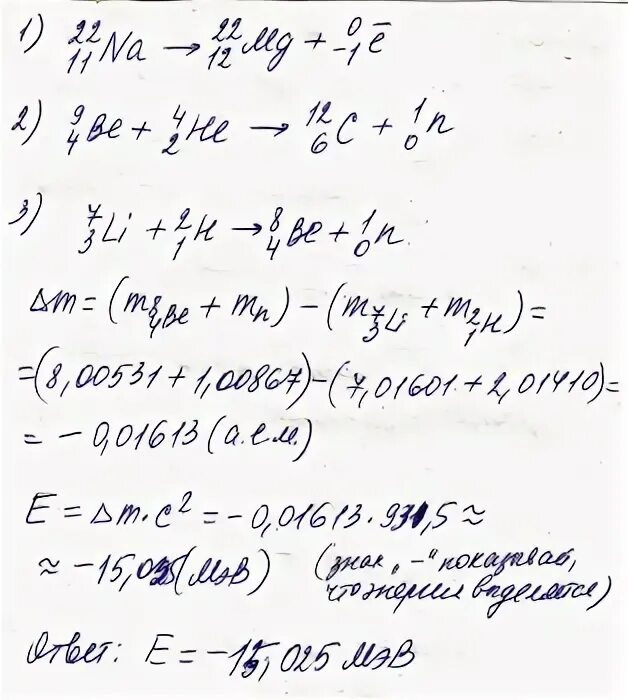 1) ²²₁₁Na → ²²₁₂Mg + ⁰₋₁ē
2) ⁹₄Be + ⁴₂He → ¹²₆C + ¹₀n
3) ⁷₃Li + ²₁H → ⁸₄Be + ¹₀n.
Δm = (m⁸₄Be + mn) − (m⁷₃Li + m²₁H) =
= (8,00531 + 1,00867) − (7,01601 + 2,01410) =
= − 0,01613 (а.е.м.)
E = Δm · c² = − 0,01613 · 931,5 ≈
≈ −15,025 (МэВ) (знак „−" показывай,
что энергия выделяется)
Ответ: E = −15,025 МэВ